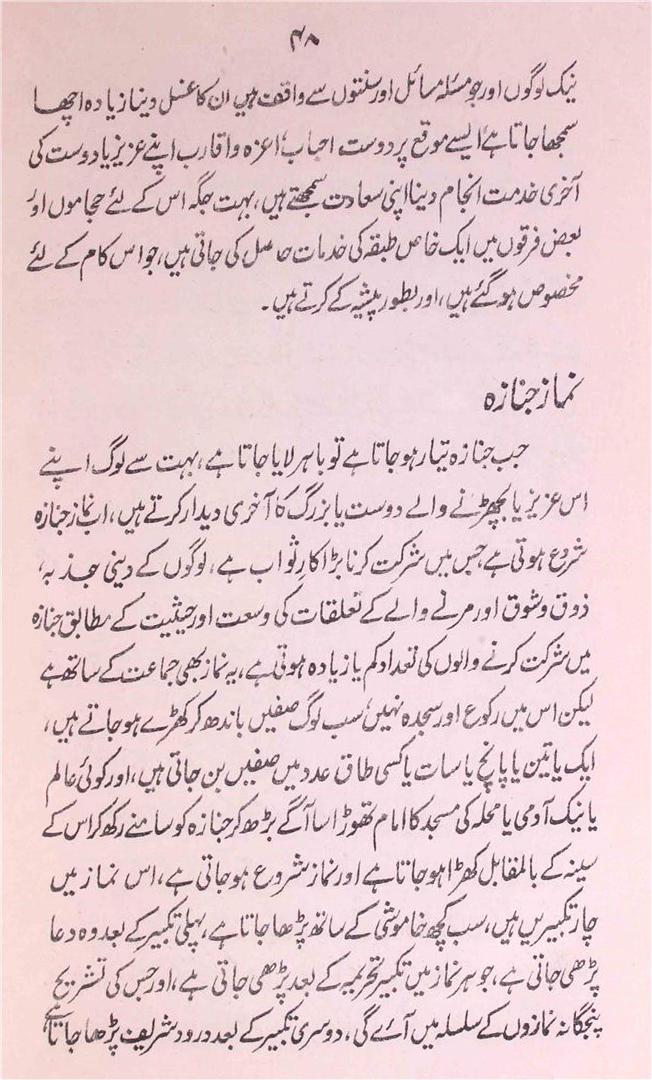 ۴۸
نیک لوگوں اور جو مسئلہ مسائل اور سنتوں سے واقف ہیں ان کا غسل دینا زیادہ اچھا
سمجھا جاتا ہے، ایسے موقع پر دوست احباب، اعزہ واقارب اپنے عزیز یا دوست کی
آخری خدمت انجام دینا اپنی سعادت سمجھتے ہیں، بہت جگہ اس کے لئے حجاموں اور
بعض فرقوں میں ایک خاص طبقہ کی خدمات حاصل کی جاتی ہیں، جو اس کام کے لئے
مخصوص ہو گئے ہیں، اور بطور پیشہ کے کرتے ہیں۔
نماز جنازہ
جب جنازہ تیار ہو جاتا ہے تو باہر لایا جاتا ہے، بہت سے لوگ اپنے
اس عزیز یا بچھڑنے والے دوست یا بزرگ کا آخری دیدار کرتے ہیں، اب نماز جنازہ
شروع ہوتی ہے، جس میں شرکت کرنا بڑا کارِ ثواب ہے، لوگوں کے دینی جذبہ،
ذوق و شوق اور مرنے والے کے تعلقات کی وسعت اور حیثیت کے مطابق جنازہ
میں شرکت کرنے والوں کی تعداد کم یا زیادہ ہوتی ہے، یہ نماز بھی جماعت کے ساتھ ہے
لیکن اس میں رکوع اور سجدہ نہیں، سب لوگ صفیں باندھ کر کھڑے ہو جاتے ہیں،
ایک یا تین یا پانچ یا سات یا کسی طاق عدد میں صفیں بن جاتی ہیں، اور کوئی عالم
یا نیک آدمی یا محلہ کی مسجد کا امام تھوڑا سا آگے بڑھ کر جنازہ کو سامنے رکھ کر اس کے
سینہ کے بالمقابل کھڑا ہو جاتا ہے اور نماز شروع ہو جاتی ہے، اس نماز میں
چار تکبیریں ہیں، سب کچھ خاموشی کے ساتھ پڑھا جاتا ہے، پہلی تکبیر کے بعد وہ دعا
پڑھی جاتی ہے، جو ہر نماز میں تکبیر تحریمہ کے بعد پڑھی جاتی ہے، اور جس کی تشریح
پنجگانہ نمازوں کے سلسلہ میں آئے گی، دوسری تکبیر کے بعد درود شریف پڑھا جاتا ہے،